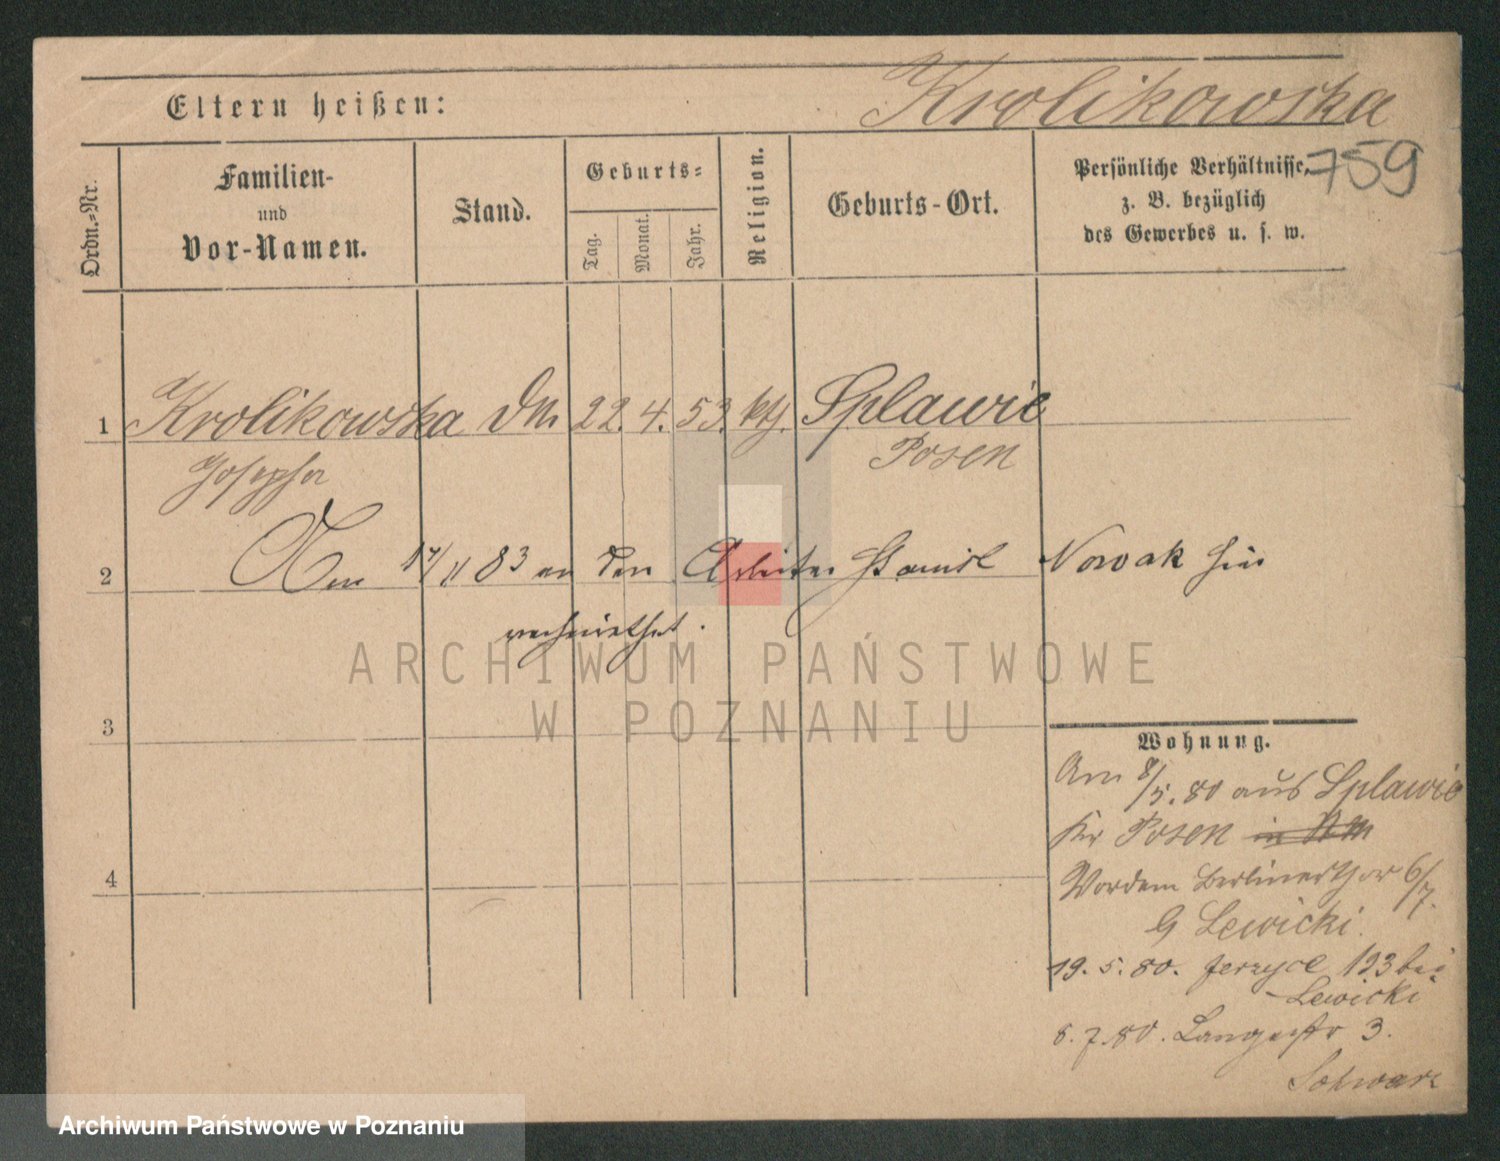 Eltern heißen:
Krolikowska
759
Ordn.-Nr.
Familien-
und
Vor-Namen.
Stand.
Geburts-
Tag.
Monat.
Jahr.
Religion.
Geburts-Ort.
Persönliche Verhältnisse,
z. B. bezüglich
des Gewerbes u. s. w.
1 Krolikowska 22. 4. 53. kth. Splawie
Josepha Posen
2 Am 17/11 83 an den Arbeiter Stanisl Nowak hier
verheirathet.
ARCHIWUM PAŃSTWOWE
W POZNANIU
3
Wohnung.
Am 8/5. 80 aus Splawie
Kr Posen in
4
Vordem Berlinerthor 6/7.
b Lewicki.
19. 5. 80. Jerzyce 123 bei
Lewicki
8. 7. 80. Langestr 3.
Schwarz
Archiwum Państwowe w Poznaniu